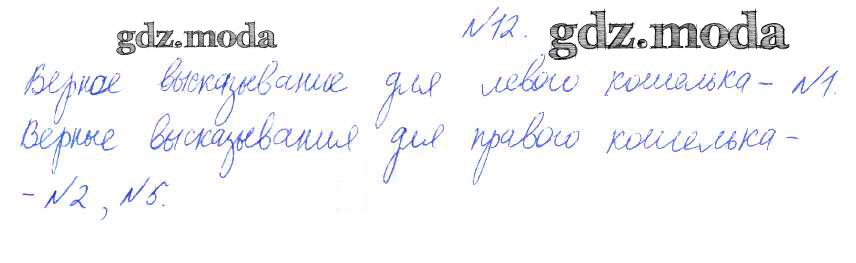 gdz.moda №12. gdz.moda
Верное высказывание для левого кошелька – №1.
Верные высказывания для правого кошелька –
– №2, №5.